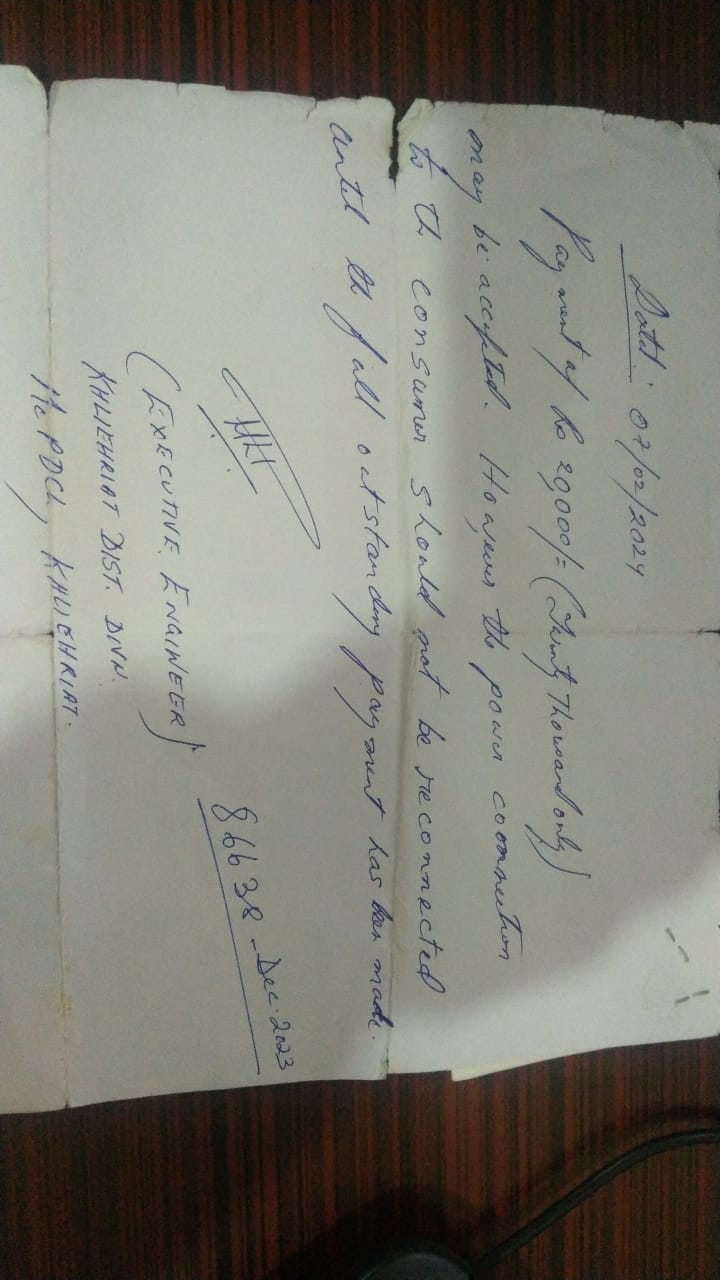 Dated: 07/02/2024
Payment of Rs 20,000/= (Twenty Thousand only)
may be accepted. However the power connection
to the consumer should not be reconnected
until the full outstanding payment has been made.
(EXECUTIVE ENGINEER)
KHLIEHRIAT DIST. DIVN.
MePDCL, KHLIEHRIAT.
86638 - Dec. 2023